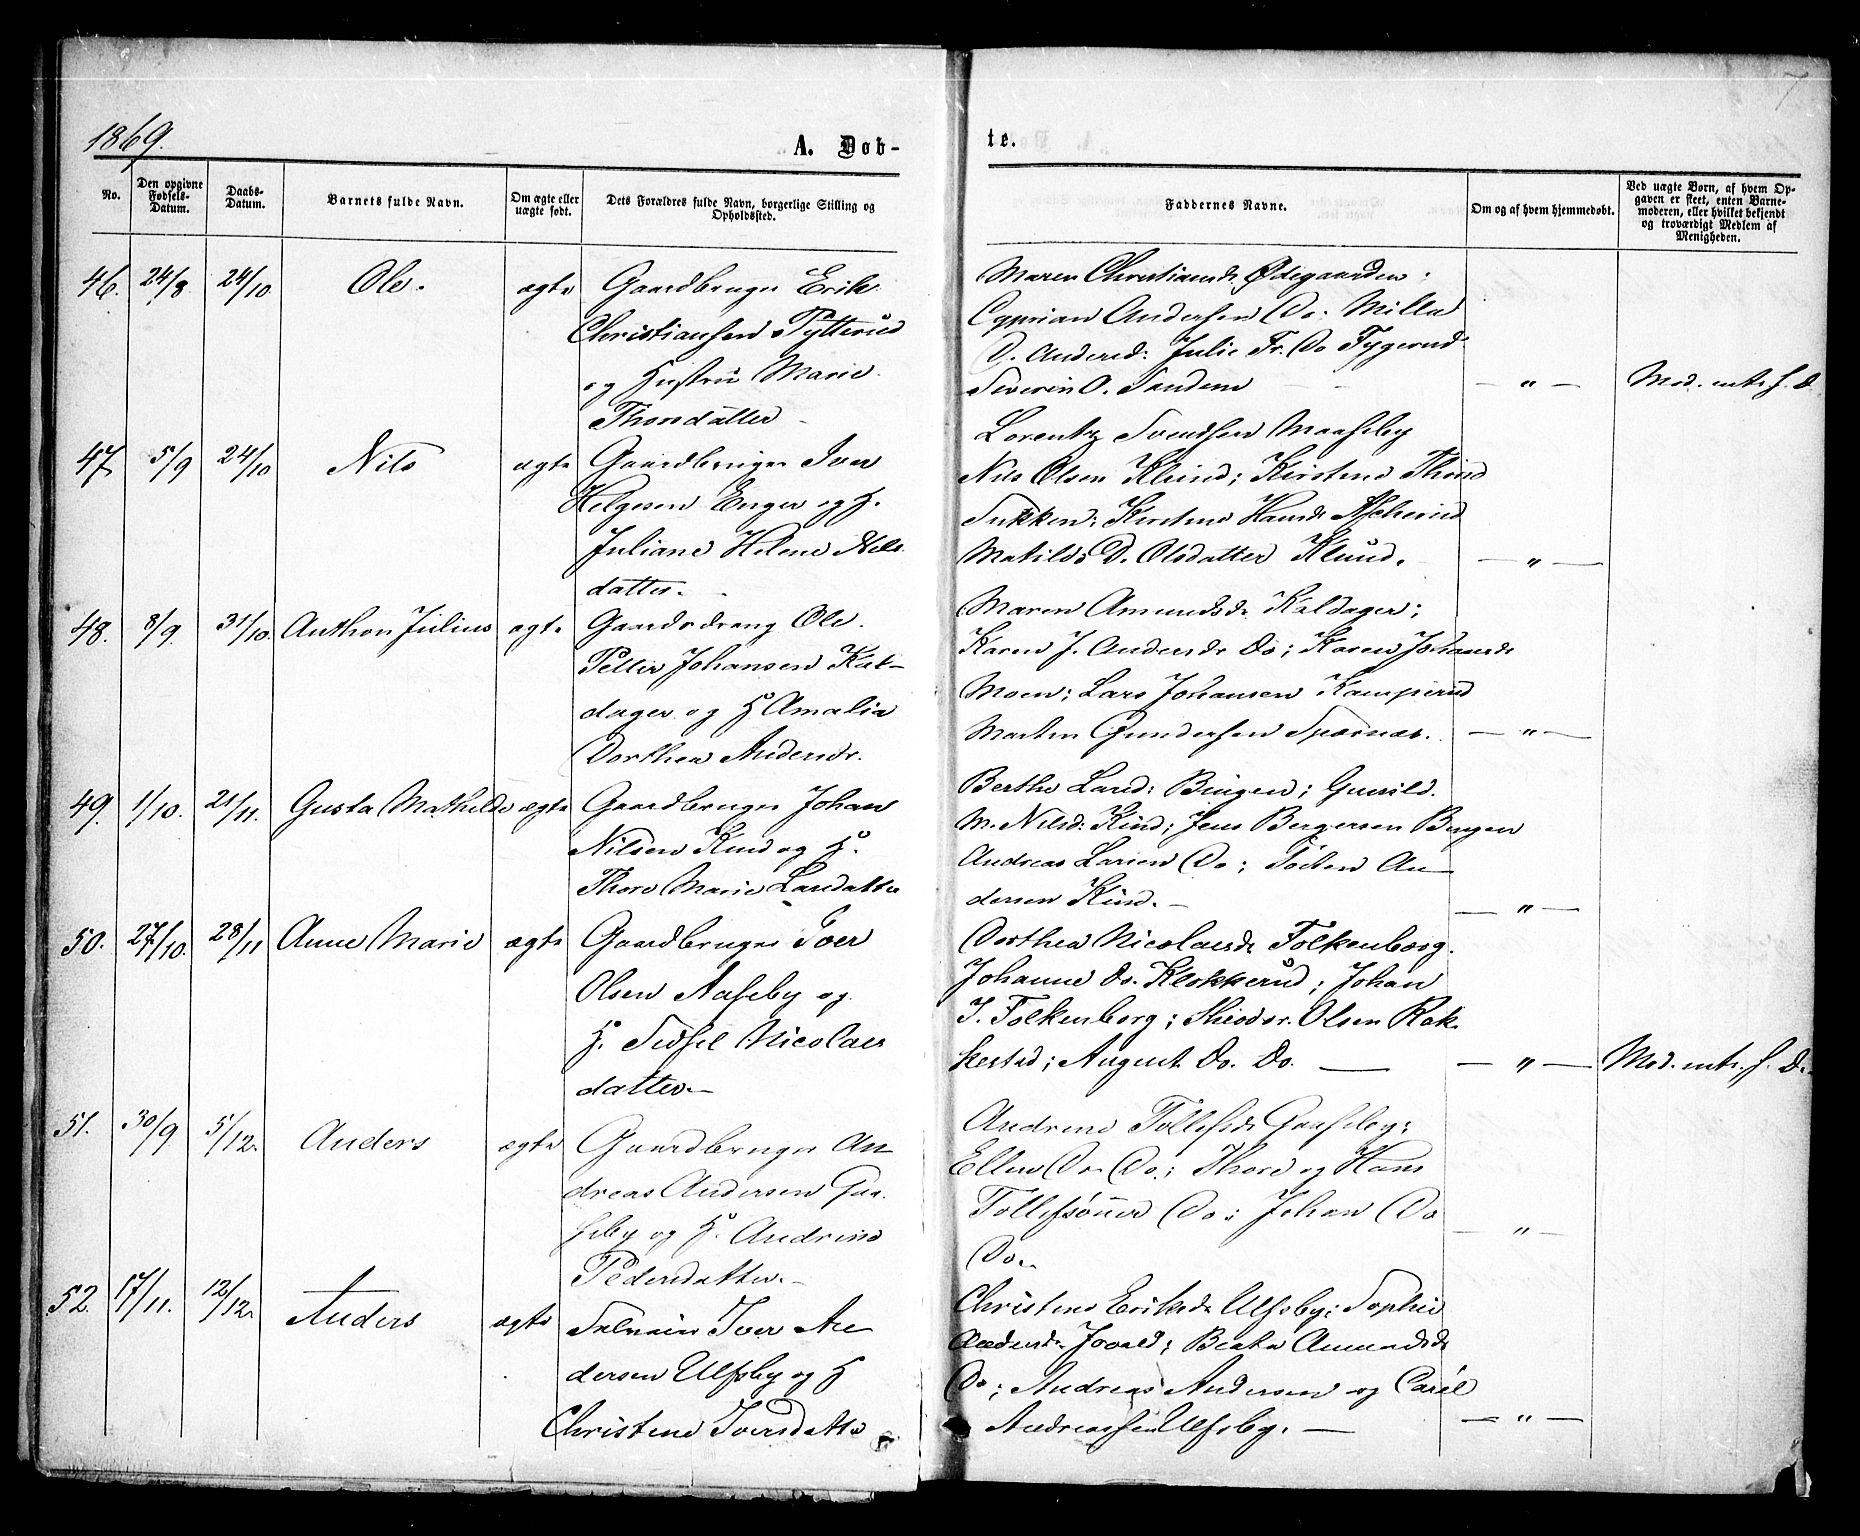 1869.
A. Døb-
te.
7
No.
Den opgivne Fødsels-Datum.
Daabs-Datum.
Barnets fulde Navn.
Om ægte eller uægte født.
Dets Forældres fulde Navn, borgerlige Stilling og Opholdssted.
Faddernes Navne.
Om og af hvem hjemmedøbt.
Ved uægte Born, af hvem Op-
gaven er skeet, enten Barne-
moderen, eller hvilket bekjendt
og troværdigt Medlem af
Menigheden.
46. 24/8 24/10 Ole. ægte Gaardbruger Erik
Christiansen Pytterud
og Hustru Marie
Thorsdatter
Maren Christiansd. Ødegaarden;
Cyprian Andersen Do; Milla
D. Andersd: Julie Fr. Do Tygerud
Severin O. Sanden — " —
47. 5/9 24/10 Nils ægte Gaardbruger Iver
Helgesen Enger og H.
Juliane Helene Nils
datter.
Lorentz Svendsen Maaseby
Nils Olsen Klund; Kirstine Thord
Kirstine Hansd.
Matilde D. Olsdatter Klund. — " —
48. 8/9 31/10. Anthon Julius ægte Gaardsdreng Ole
Petter Johansen Kal-
dager og H Amalia
Dorthea Andersdr.
Maren Amundsdr Kaldager;
Karen J. Andersdr Do; Karen Johansdr
Moen; Lars Johansen Kamperud
Martin Gundersen — " —
49. 1/10. 21/11. Gusta Mathilde ægte Gaardbruger Johan
Nilsen Kind og H.
Thore Marie Larsdatter
Berthe Larsd: Bingen; Gunild
M. Nilsd: Kind; Jens Bergersen Bingen
Andreas Larsen Do; An
dersen Kind. — " —
50. 27/10. 28/11 Anne Marie ægte Gaardbruger Iver
Olsen Aaseby og
H. Sidsel Nicolais
datter.—
Dorthea Nicolaisdr Folkenborg.
Johanne Do. Klokkerud; Johan
J. Folkenborg; Theodor Olsen Rak
kestad; August Do. Do. — " —
51. 30/9 5/12. Anders ægte Gaardbruger An
dreas Andersen Gaa
seby og H. Andrine
Pedersdatter.—
Andrine Tollefsdr Gaaseby;
Ellen Do Do; Thore og Hans
Tollefsønner Do; Johan Do
Do. — " —
52. 17/11. 12/12. Anders ægte Iver An
dersen Ulfsby og H
Christine Iversdatter
Christine Eriksdr Ulfsby; Sophie
Andersdr Beate Amundsdr
Do; Andreas Andersen og Carl
Andreassen Ulfsby. — " —